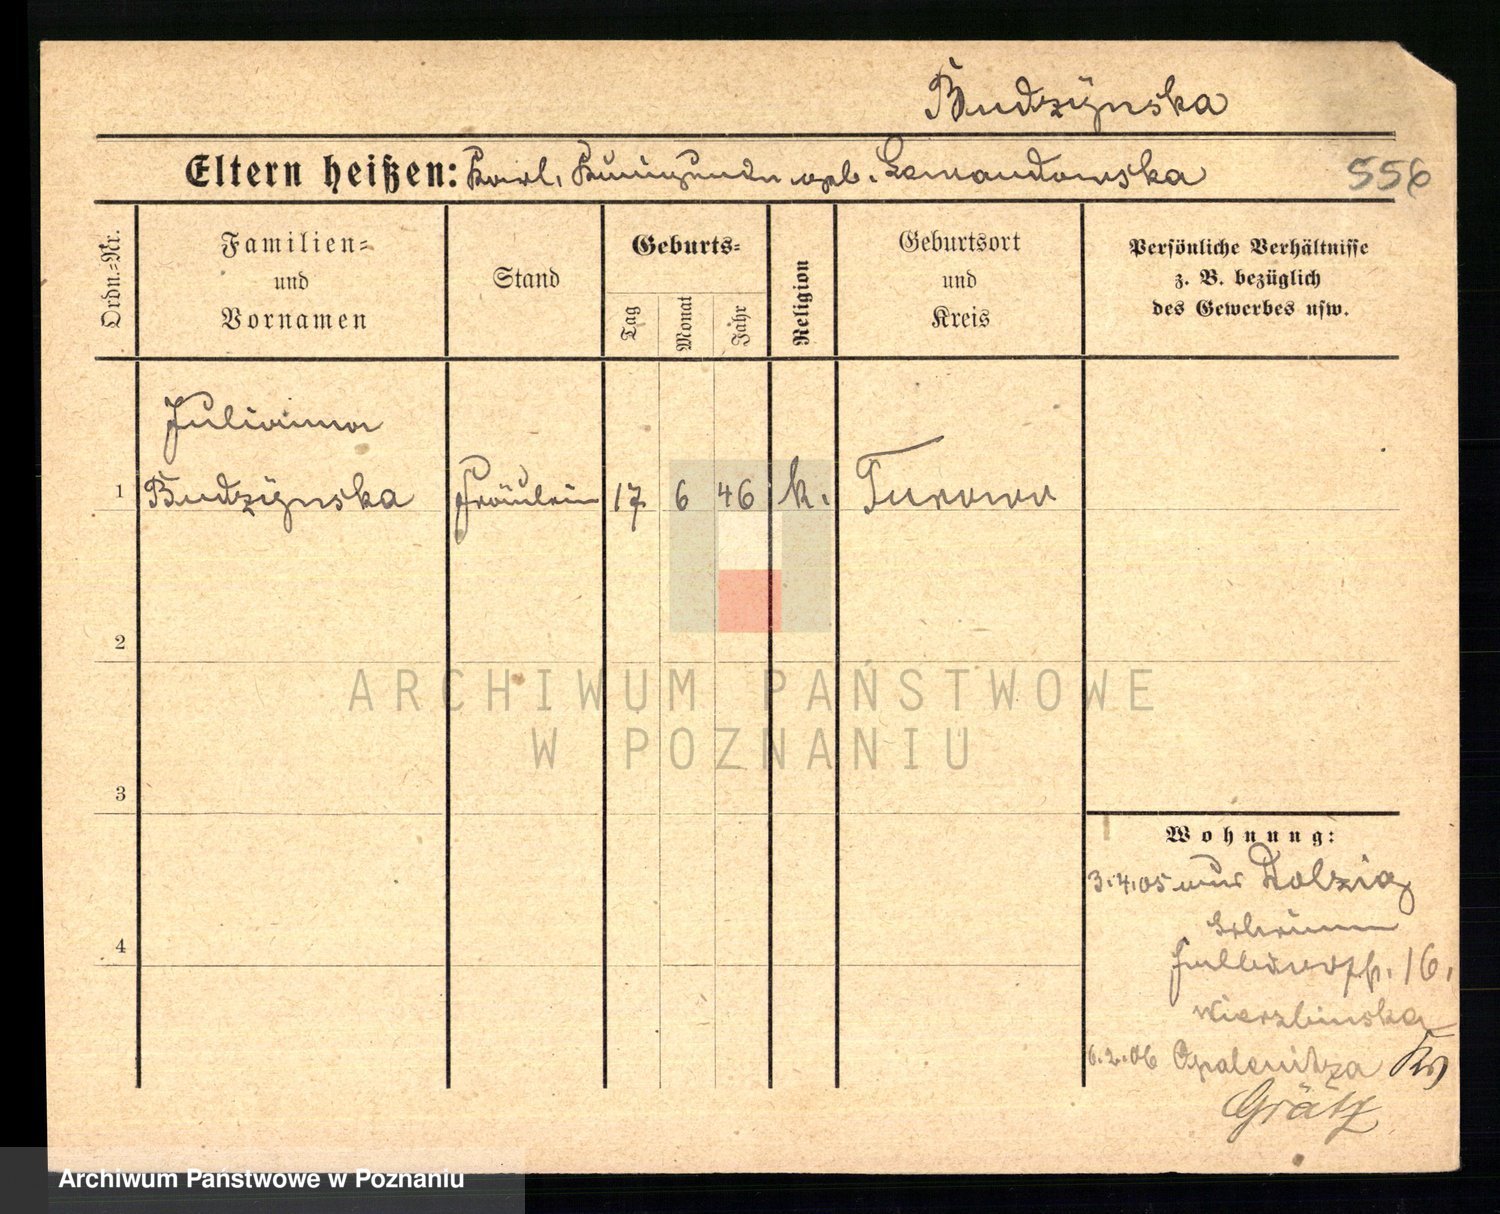 Budzÿnska
Eltern heißen: Karl, Kunigunde geb. Lewandowska
556
Ordn.=Nr.
Familien=
und
Vornamen
Stand
Geburts=
Tag
Monat
Jahr
Religion
Geburtsort
und
Kreis
Persönliche Verhältnisse
z. B. bezüglich
des Gewerbes usw.
Julianna
1 Budzÿnska Fräulein 17 6 46 k. Turowo
2
3
4
Wohnung:
3.4.05 aus Dolzig
Schrimm
16.
Wierzbinska
6.2.06 Opalenitza Kr
Grätz
ARCHIWUM PAŃSTWOWE
W POZNANIU
Archiwum Państwowe w Poznaniu